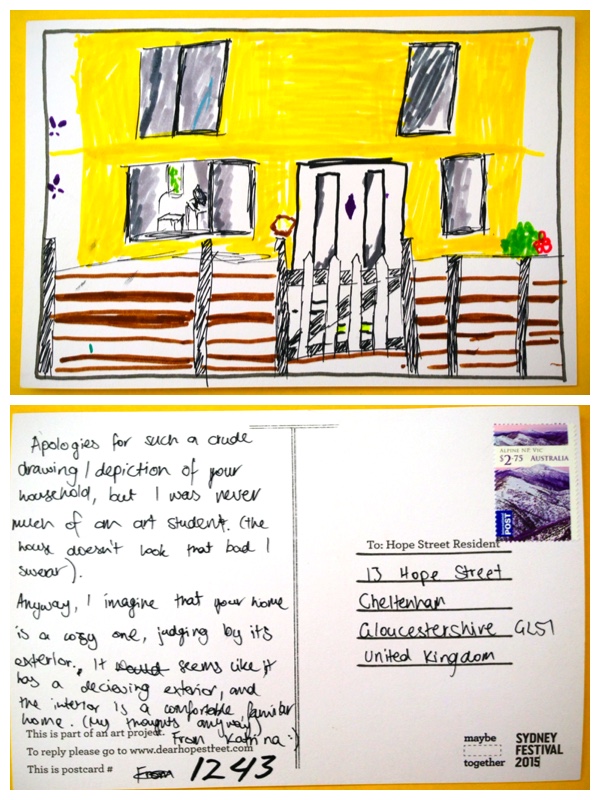 Apologies for such a crude
drawing/depiction of your
household, but I was never
much of an art student. (the
house doesn't look that bad I
swear).
Anyway, I imagine that your home
is a cosy one, judging by its
exterior. It would seems like it
has a decieving exterior, and
the interior is a comfortable, familiar
home. (My thoughts anyway)
From Katrina :)
This is part of an art project.
To reply please go to www.dearhopestreet.com
This is postcard # From 1243
ALPINE NP, VIC
$2.75 AUSTRALIA
POST
To: Hope Street Resident
13 Hope Street
Cheltenham
Gloucestershire GL51
United Kingdom
maybe
together
SYDNEY
FESTIVAL
2015